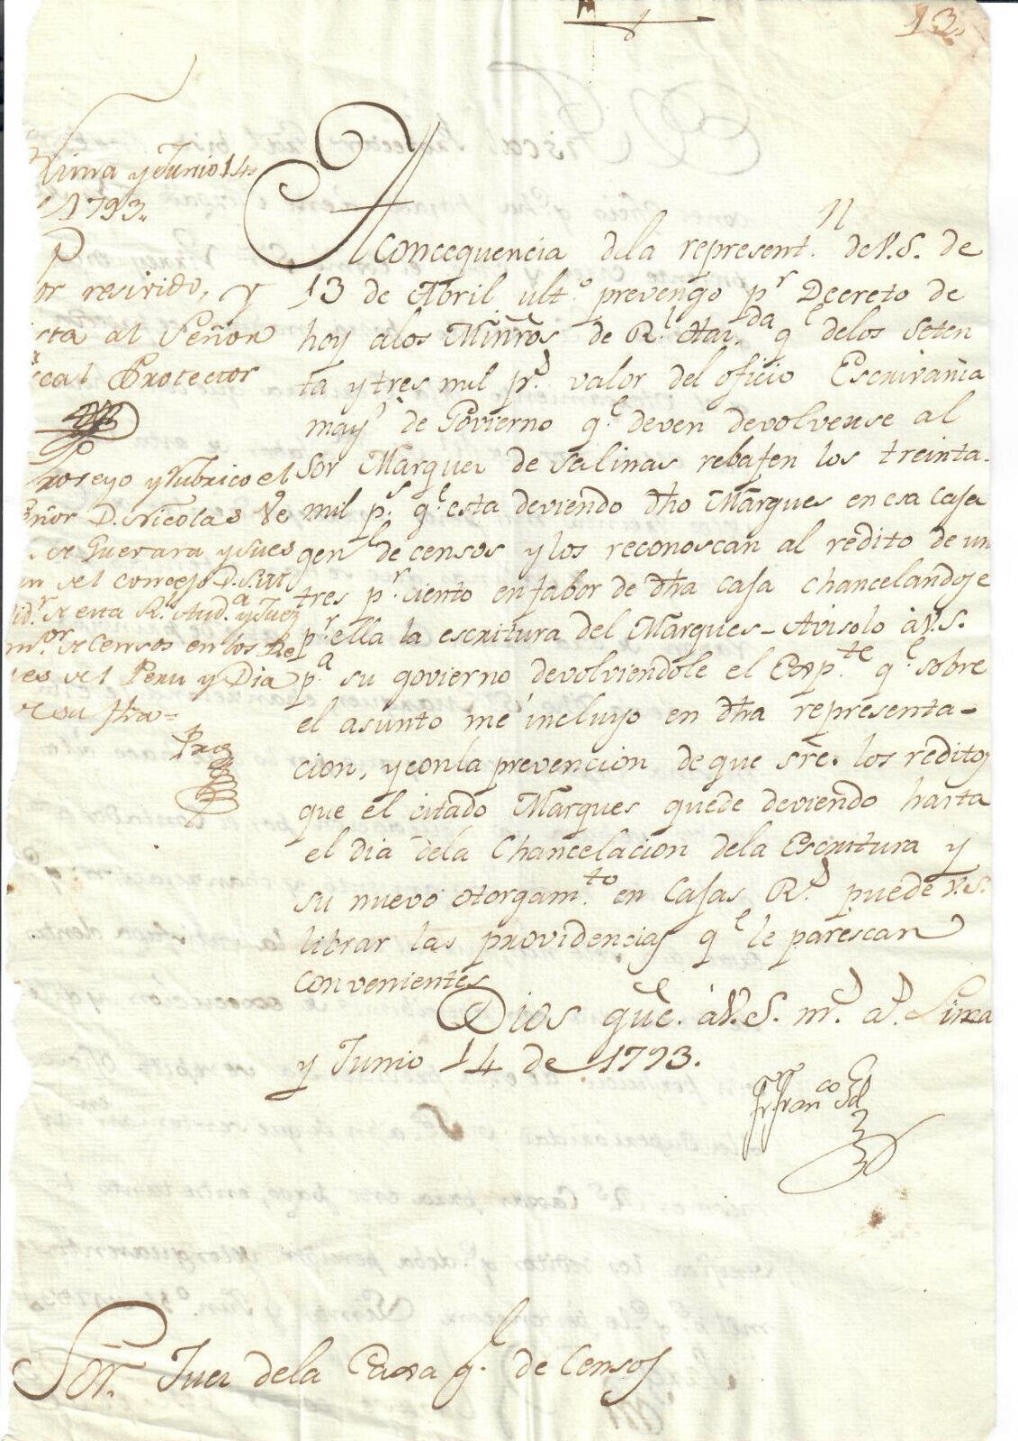 13,
Lima y Junio 14
1793.
or resivido, y
al Señor
Protector
proveyo y rubrico el
D. Nicolas Ve
Guevara y
del Concejo D.
esta Rl. Auda. y Juez
de Censos en los Re
del Peru y Dia
de su fha=
A concequencia dela representn. de V.S. de
13 de Abril ulto. prevengo pr. Decreto de
hoy alos Minrōs de Rl. Hazda. qe. delos Seten
ta y tres mil ps. valor del oficio Escrivania
mayr. de Govierno qe. deven devolverse al
Sor Marquez de Salinas rebajen los treinta
mil ps. qe. esta deviendo dho Marques en esa caja
genl. de censos y los reconoscan al redito de un
tres pr. ciento en fabor de dha caja chancelandose
pr. ella la escritura del Marques_ Avisolo à V.S.
pa. su govierno devolviendole el Expte. qe. sobre
el asunto me incluyo en dha representa-
cion, y con la prevencion de que sre. los reditos
que el citado Marques quede deviendo hasta
el dia dela Chancelacion dela Escritura y
su nuevo otorgamto. en Cajas Rs. puede V.S.
librar las providencias qe. le parescan
convenientes
Dios gue. à V.S. ms. as. Lima
y Junio 14 de 1793.
Fr. Franco. Gil
Sor. Juez dela Caxa gl. de Censos